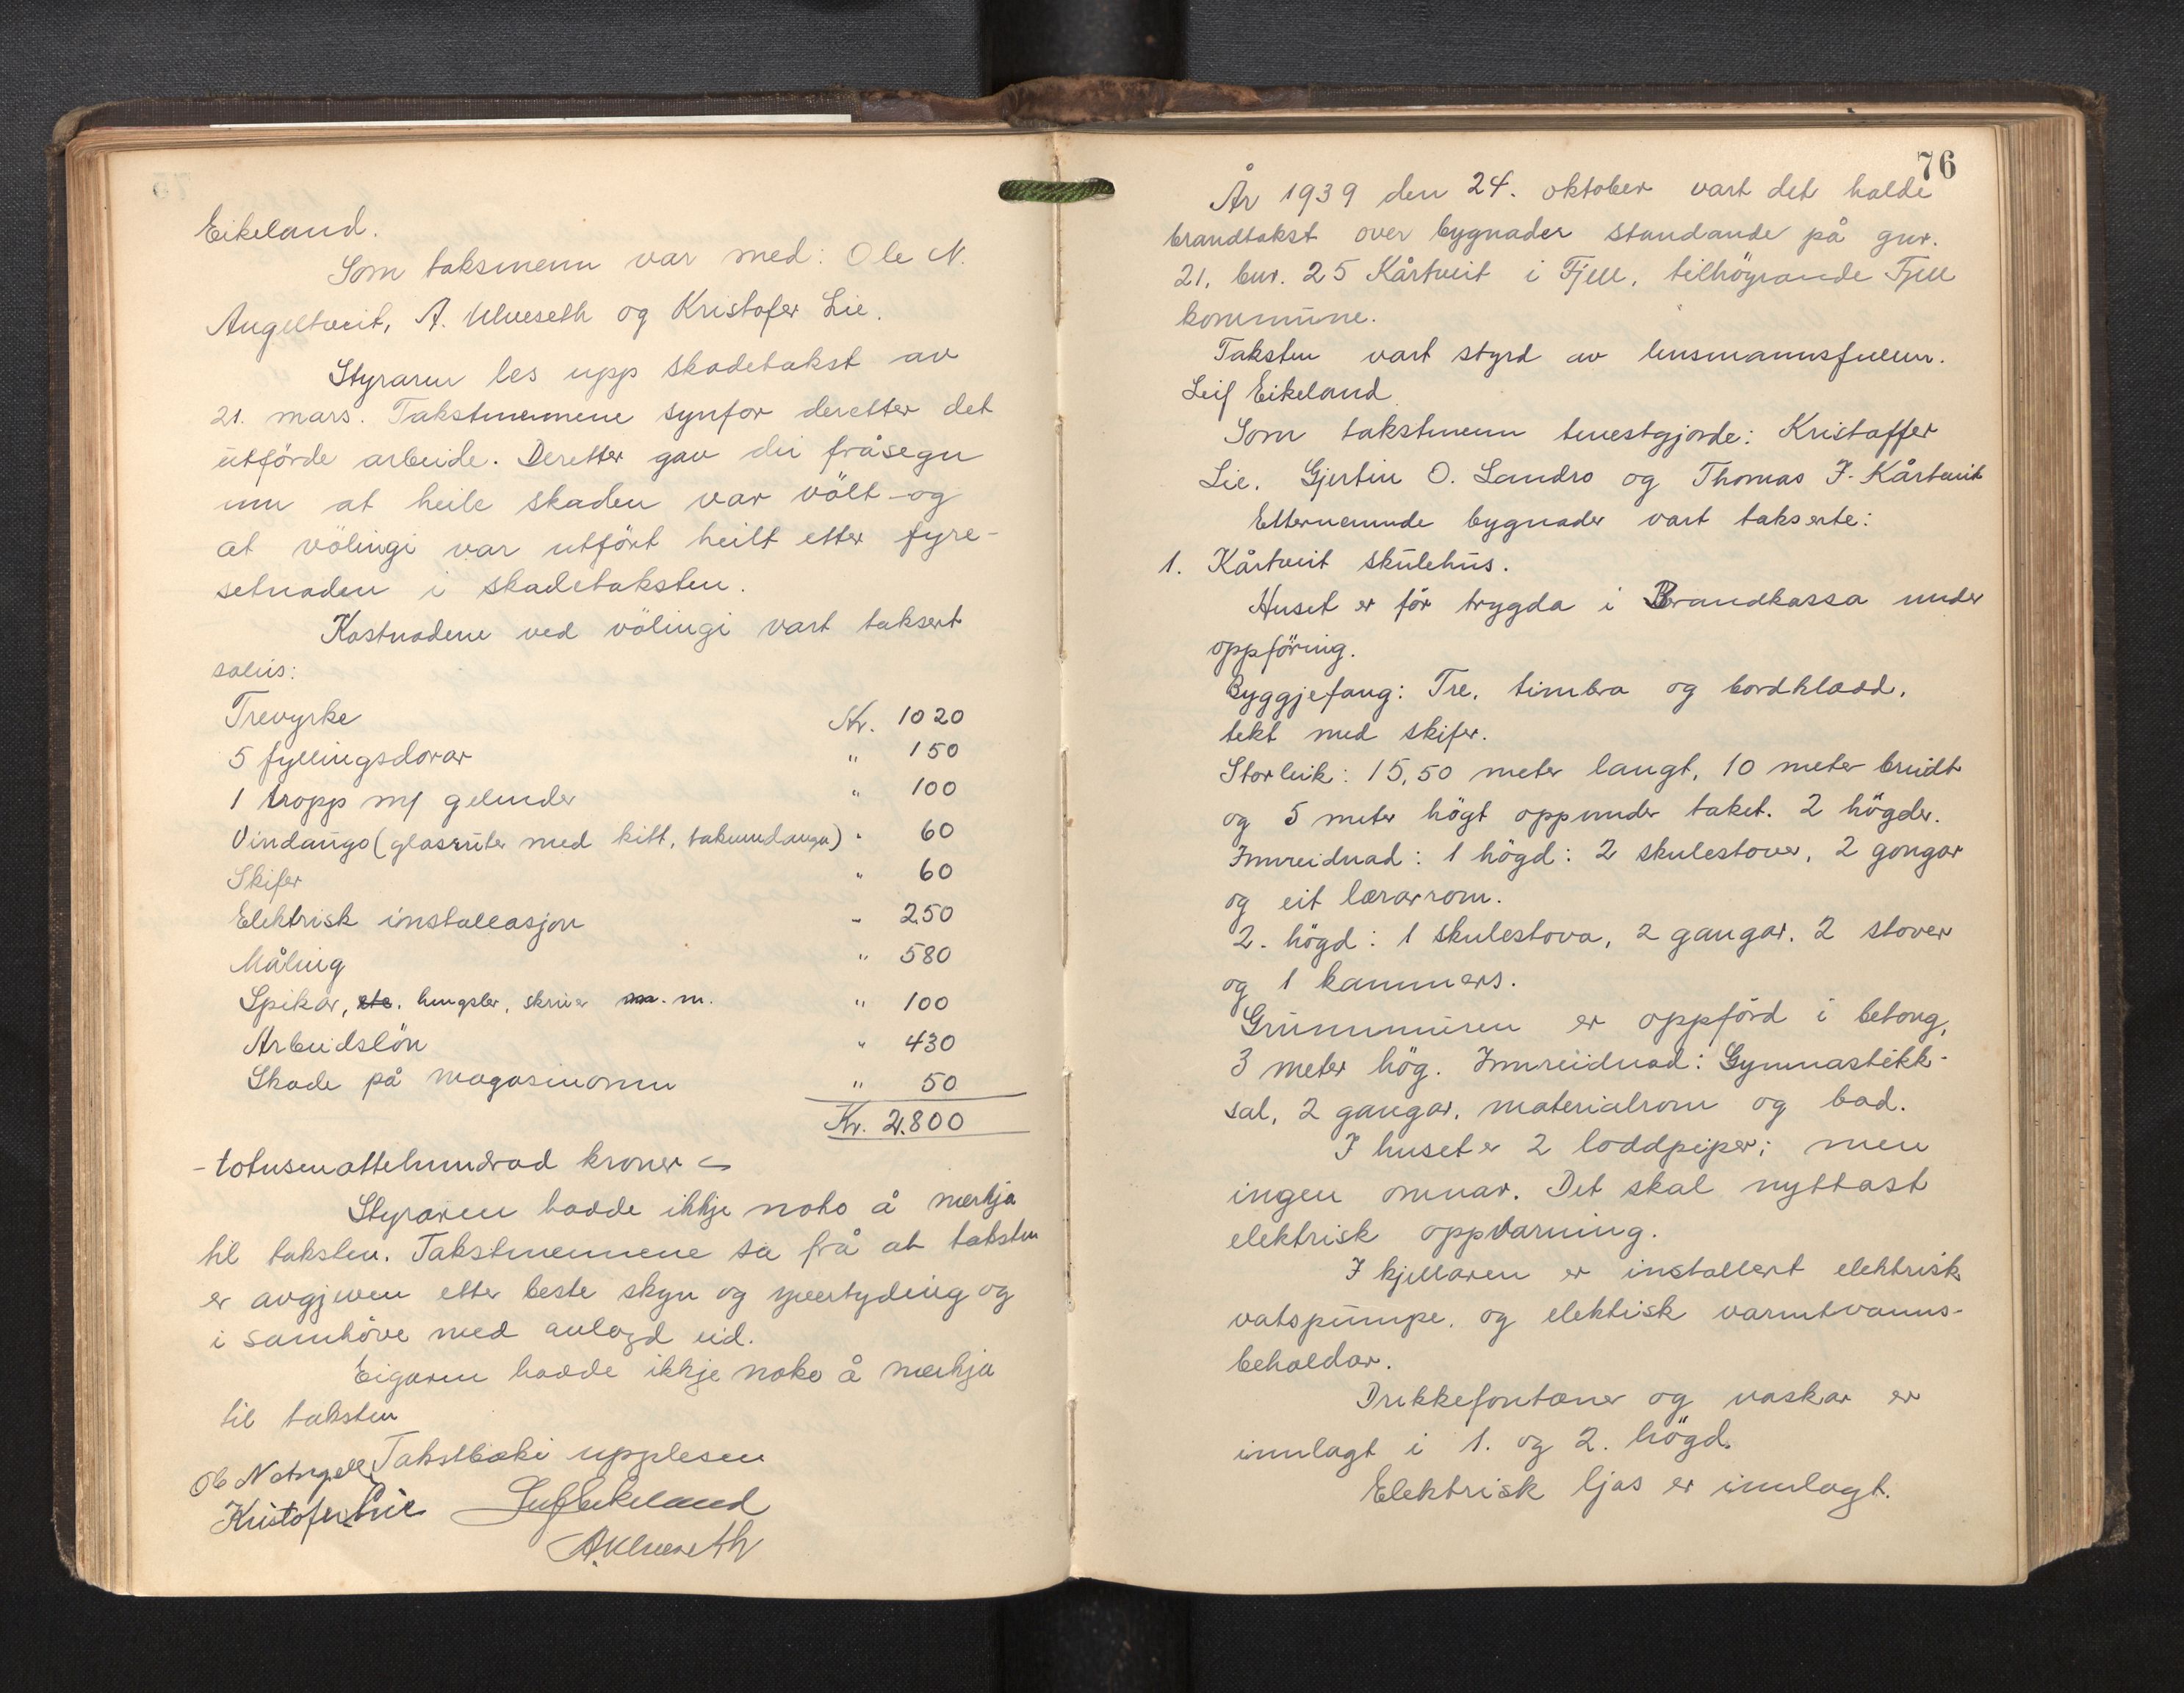 Eikeland.
Som taksmenn var med: Ole N.
Angeltveit, A. Ulveseth og Kristofer Lie.
Styraren les upp skadetakst av
21. mars. Takstmennene synfor deretter det
utförde arbeide. Deretter gav dei fråsegn
um at heile skaden var völt og
at völingi var utfört heilt etter fyre-
setnaden i skadetaksten.
Kostnadene ved völingi vart taksert
soleis:
Trevyrke Kr. 1020
5 fyllingsdorar " 150
1 tropp m/ gelender " 100
Vindaugo (glasruter med kitt, takvindauga) " 60
Skifer " 60
Elektrisk installasjon " 250
Måling " 580
Spikar, etc. hengsler, skruer m. m. " 100
Arbeidslön " 430
Skade på magasinomn " 50
Kr. 2.800
- totusenattehundrad kroner -
Styraren hadde ikkje noko å merkja
til taksten. Takstmennene sa frå at taksten
er avgjeven etter beste skyn og yvertyding og
i samhöve med avlagd eid.
Eigaren hadde ikkje noko å merkja
til taksten
Takstboki upplesen
Kristofer Lie Leif Eikeland
A. Ulveseth
76
År 1939 den 24. oktober vart det halde
brandtakst over bygnader standande på gnr.
21, bnr. 25 Kårtveit i Fjell, tilhöyrande Fjell
kommune.
Taksten vart styrd av lensmannsfullm.
Leif Eikeland
Som takstmenn tenestgjorde: Kristoffer
Lie, Gjertin O. Landro og Thomas J. Kårtveit
Etternemnde bygnader vart takserte:
1. Kårtveit skulehus.
Huset er för trygda i Brandkassa under
oppföring.
Byggjefang: Tre, timbra og bordkladd,
tekt med skifer.
Storleik: 15,50 meter langt, 10 meter breidt
og 5 meter högt oppunder taket. 2 högder.
Innreidnad: 1 högd: 2 skulestover, 2 gongar
og eit lærarrom.
2. högd: 1 skulestova, 2 gangar, 2 stover
og 1 kammers.
Grunnmuren er oppförd i betong,
3 meter hög. Innreidnad: Gymnastikk-
sal, 2 gangar, materialrom og bad.
I huset er 2 loddpiper; men
ingen omnar. Det skal nyttast
elektrisk oppvarming.
I kjellaren er installert elektrisk
vatspumpe, og elektisk varmtvanns-
behaldar.
Drikkefontener og vaskar er
innlagt i 1. og 2. högd.
Elektrisk ljos er innlagt.